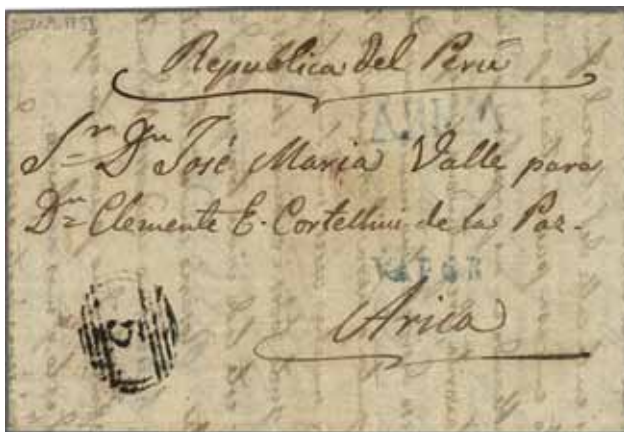 Republica del Perú
Sr Dn José Maria Valle para
Dn Clemente E. Cortellini de la Paz.
VAPOR
Arica
C